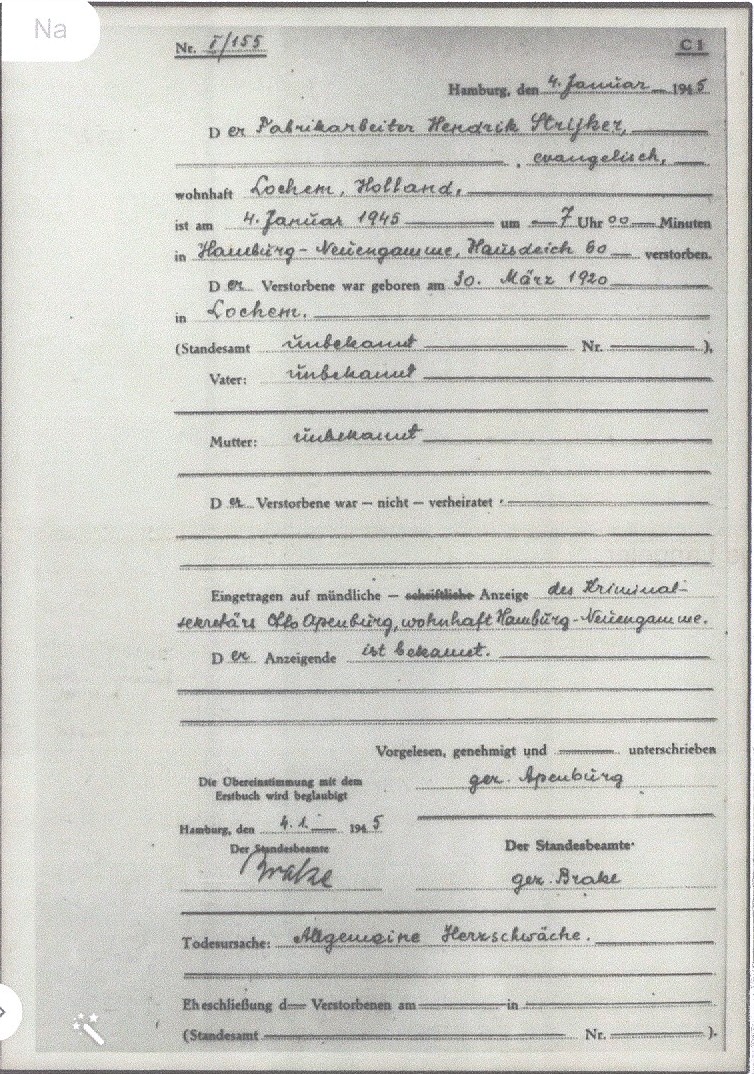 Na
Nr. I/155 C 1
Hamburg, den 4. Januar 1945
Der Fabrikarbeiter Hendrik Strijker,
, evangelisch,
wohnhaft Lochem, Holland,
ist am 4. Januar 1945 um 7 Uhr 00 Minuten
in Hamburg-Neuengamme, Hausdeich 60 verstorben.
Der Verstorbene war geboren am 30. März 1920
in Lochem.
(Standesamt unbekannt Nr. ),
Vater: unbekannt
Mutter: unbekannt
Der Verstorbene war – nicht – verheiratet
Eingetragen auf mündliche – schriftliche Anzeige des Kriminal-
sekretärs Otto Apenburg, wohnhaft Hamburg-Neuengamme.
Der Anzeigende ist bekannt.
Vorgelesen, genehmigt und unterschrieben
gez. Apenburg
Die Übereinstimmung mit dem
Erstbuch wird beglaubigt
Hamburg, den 4. 1. 1945
Der Standesbeamte
Brake
Der Standesbeamte
gez. Brake
Todesursache: Allgemeine Herzschwäche.
Eheschließung d Verstorbenen am in
(Standesamt Nr. ).